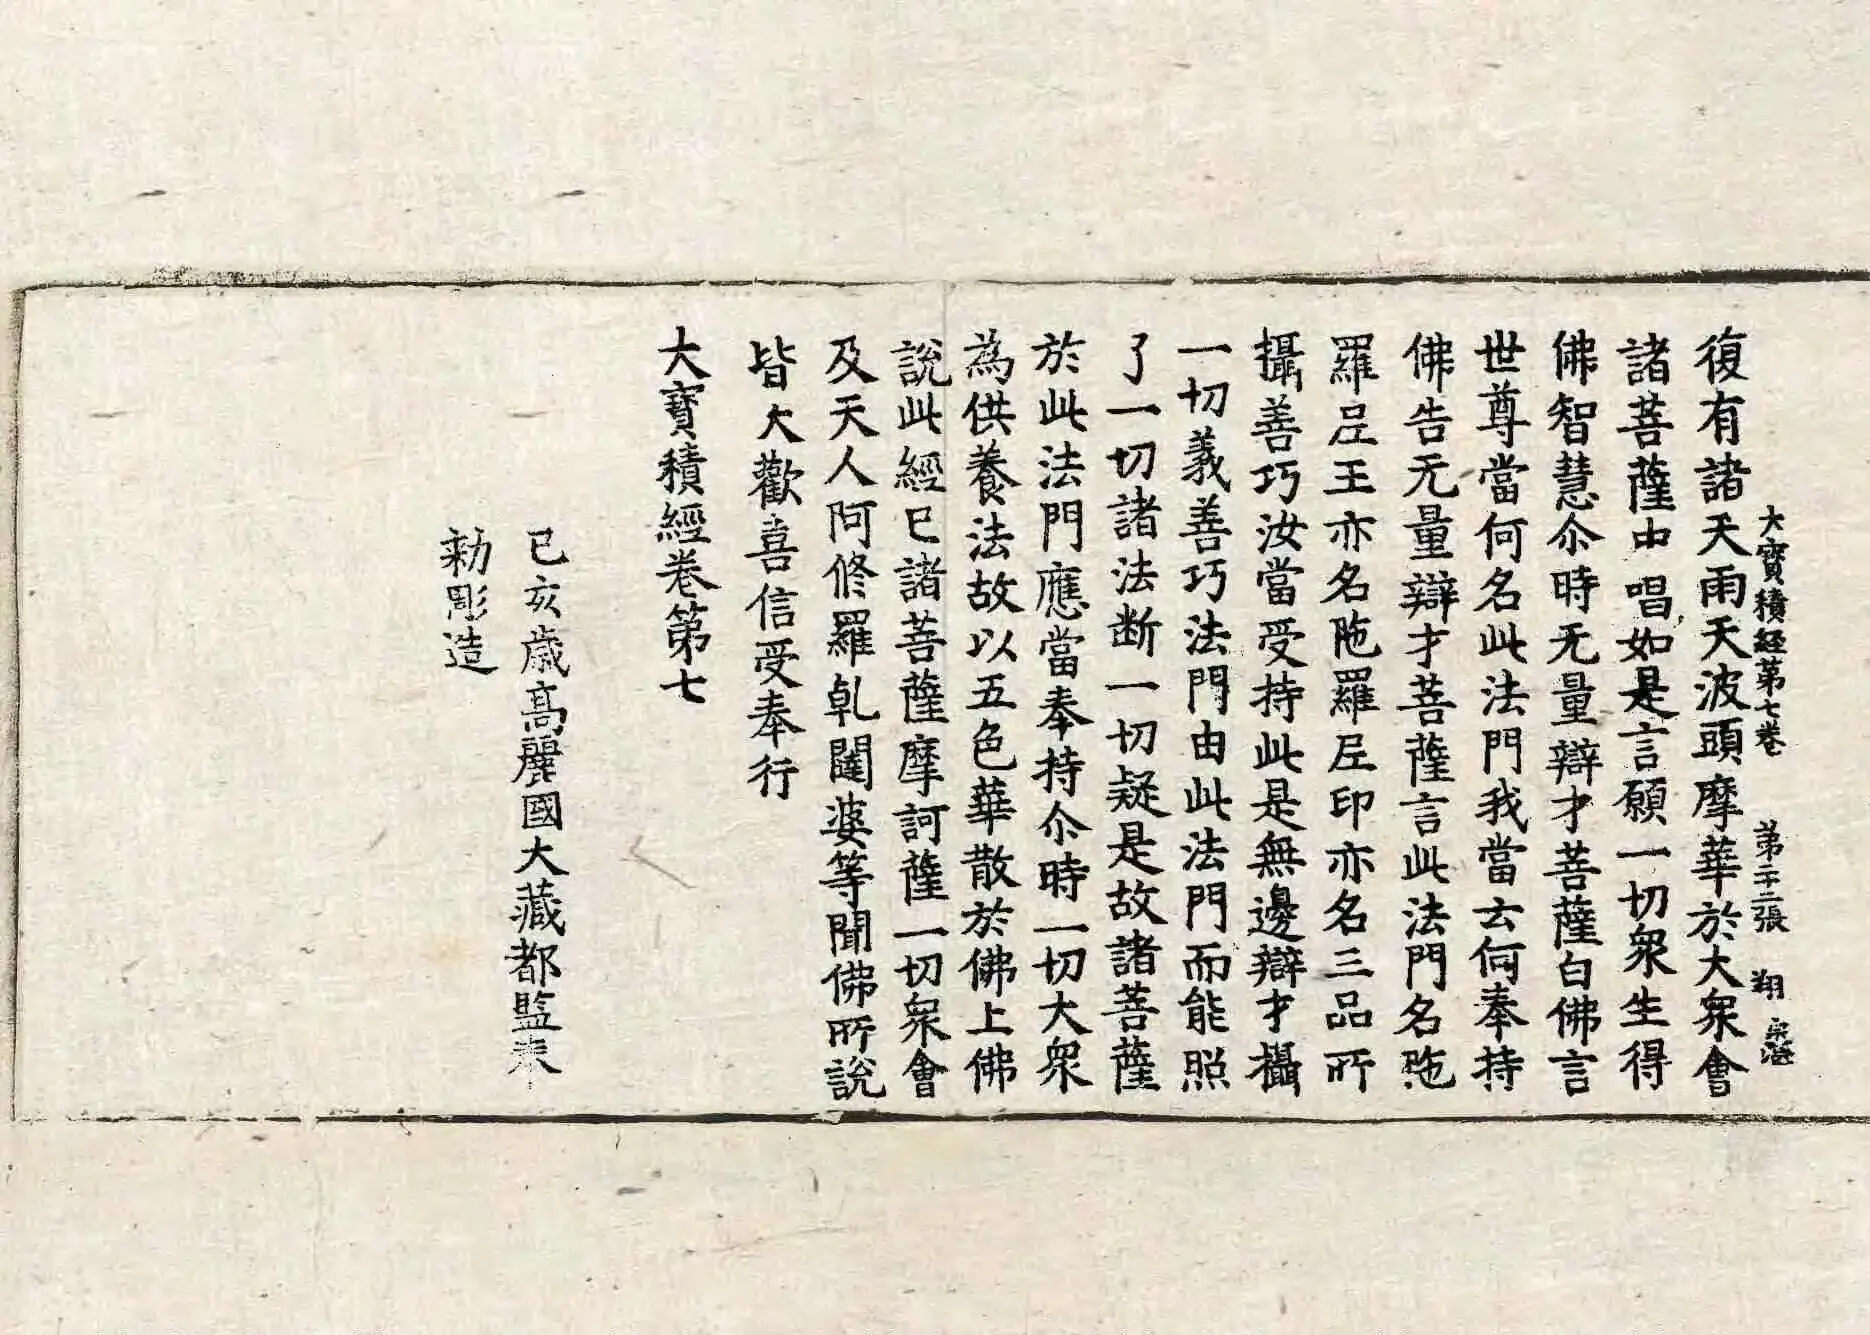 大寶積經第七卷 第二十二張 翔
復有諸天雨天波頭摩華於大衆會
諸菩薩中唱如是言願一切衆生得
佛智慧尒時无量辯才菩薩白佛言
世尊當何名此法門我當云何奉持
佛告无量辯才菩薩言此法門名陁
羅尼王亦名陁羅尼印亦名三品所
攝善巧汝當受持此是無邊辯才攝
一切義善巧法門由此法門而能照
了一切諸法断一切疑是故諸菩薩
於此法門應當奉持尒時一切大衆
為供養法故以五色華散於佛上佛
說此經已諸菩薩摩訶薩一切衆會
及天人阿修羅乹闥婆等聞佛所說
皆大歡喜信受奉行
大寶積經卷第七
己亥歲高麗國大藏都監奉
勑彫造